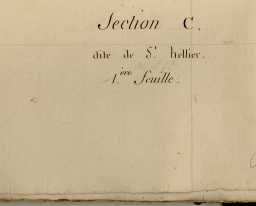 Section C.
dite de St. hellier.
1.ere feuille.